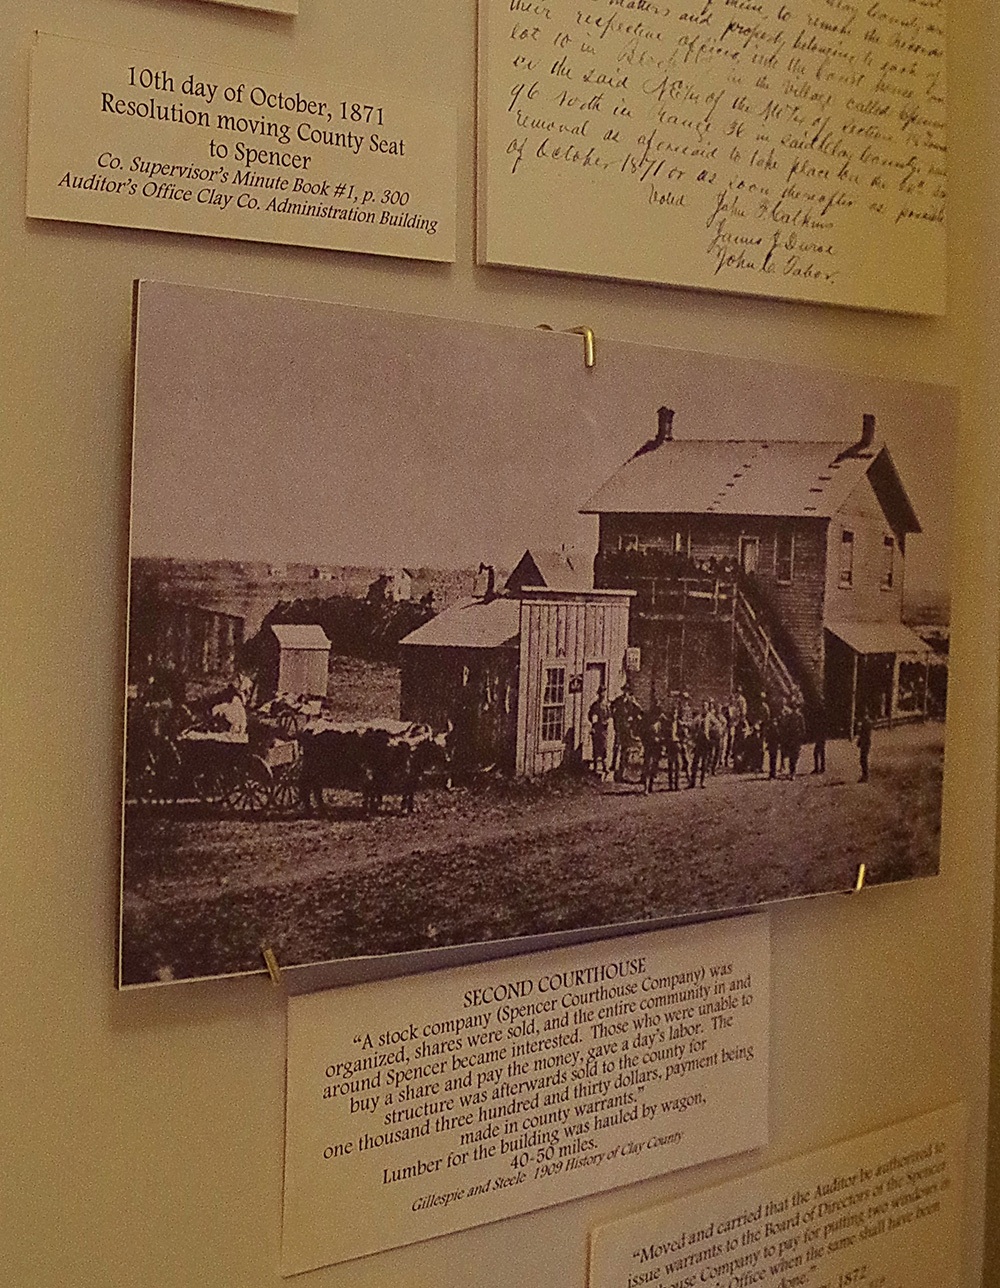 10th day of October, 1871
Resolution moving County Seat
to Spencer
Co. Supervisor's Minute Book #1, p. 300
Auditor's Office Clay Co. Administration Building
to remove the Records
matters and property belonging to each of
their respective offices, into the Court house on
lot 10 in Block in the village called Spencer
on the said of the of Section
96 North in Range 36 in said Clay County, said
removal as aforesaid to take place on the
of October 1871 or as soon thereafter as possible
Voted John F. Calkins
James J.
John C. Tabor.
SECOND COURTHOUSE
"A stock company (Spencer Courthouse Company) was
organized, shares were sold, and the entire community in and
around Spencer became interested. Those who were unable to
buy a share and pay the money, gave a day's labor. The
structure was afterwards sold to the county for
one thousand three hundred and thirty dollars, payment being
made in county warrants."
Lumber for the building was hauled by wagon,
40-50 miles.
Gillespie and Steele 1909 History of Clay County
"Moved and carried that the Auditor be authorized to
issue warrants to the Board of Directors of the Spencer
house Company to pay for putting two windows in
Office when the same shall have been
done."
1872